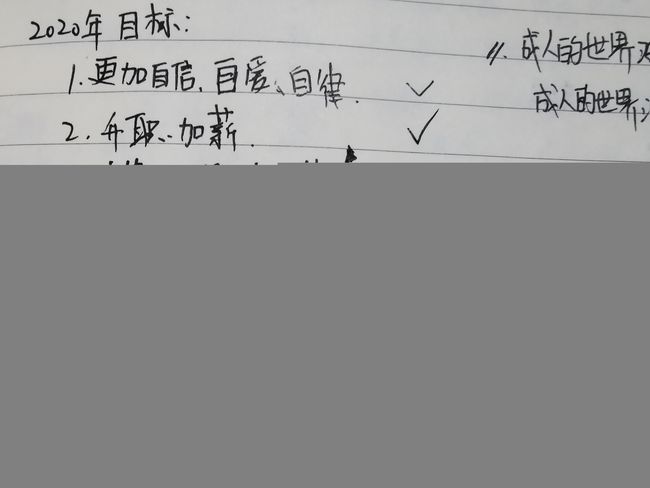 2020年目标:
1.更加自信、自爱、自律.
2.升职.加薪.
11.成人的世界
成人的世界